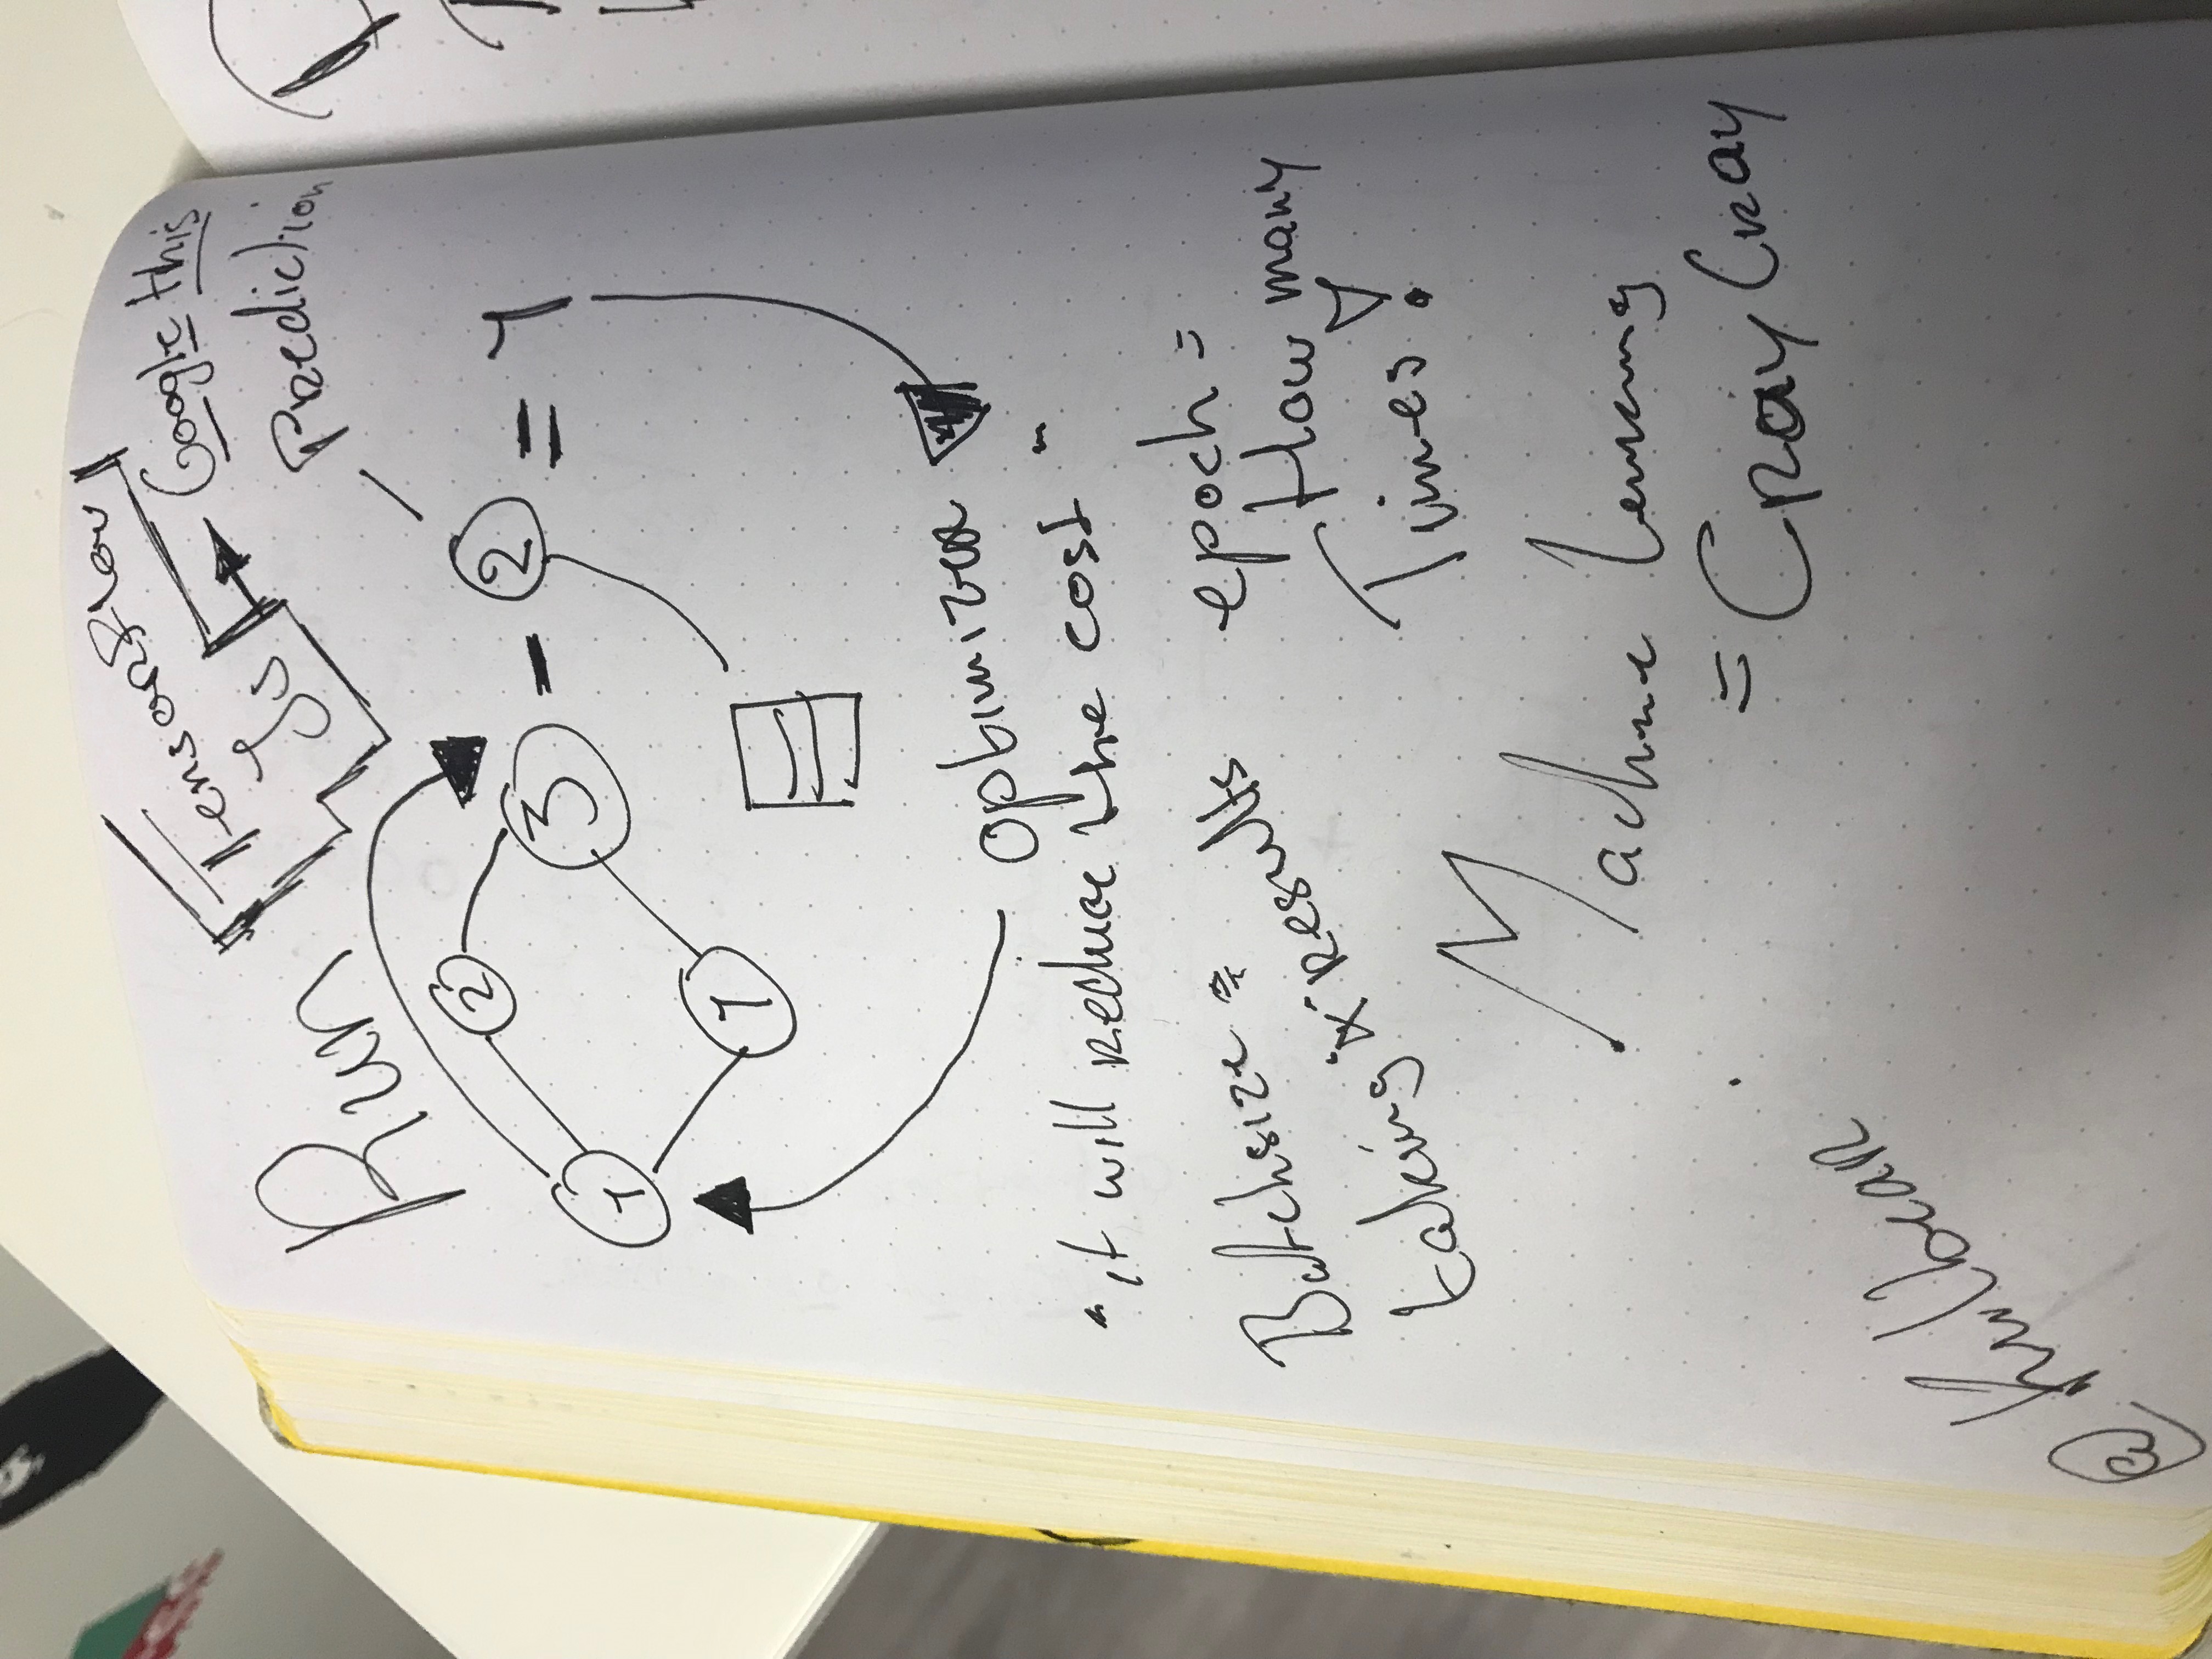 TensorFlow
Js
Google this
Run
Prediction
2
1
3 - 2 = 1
1
optimizer
"it will reduce the cost"
Batchsize =
taking "x" results
epoch =
How many
Times!
Machine learning
= Cray Cray